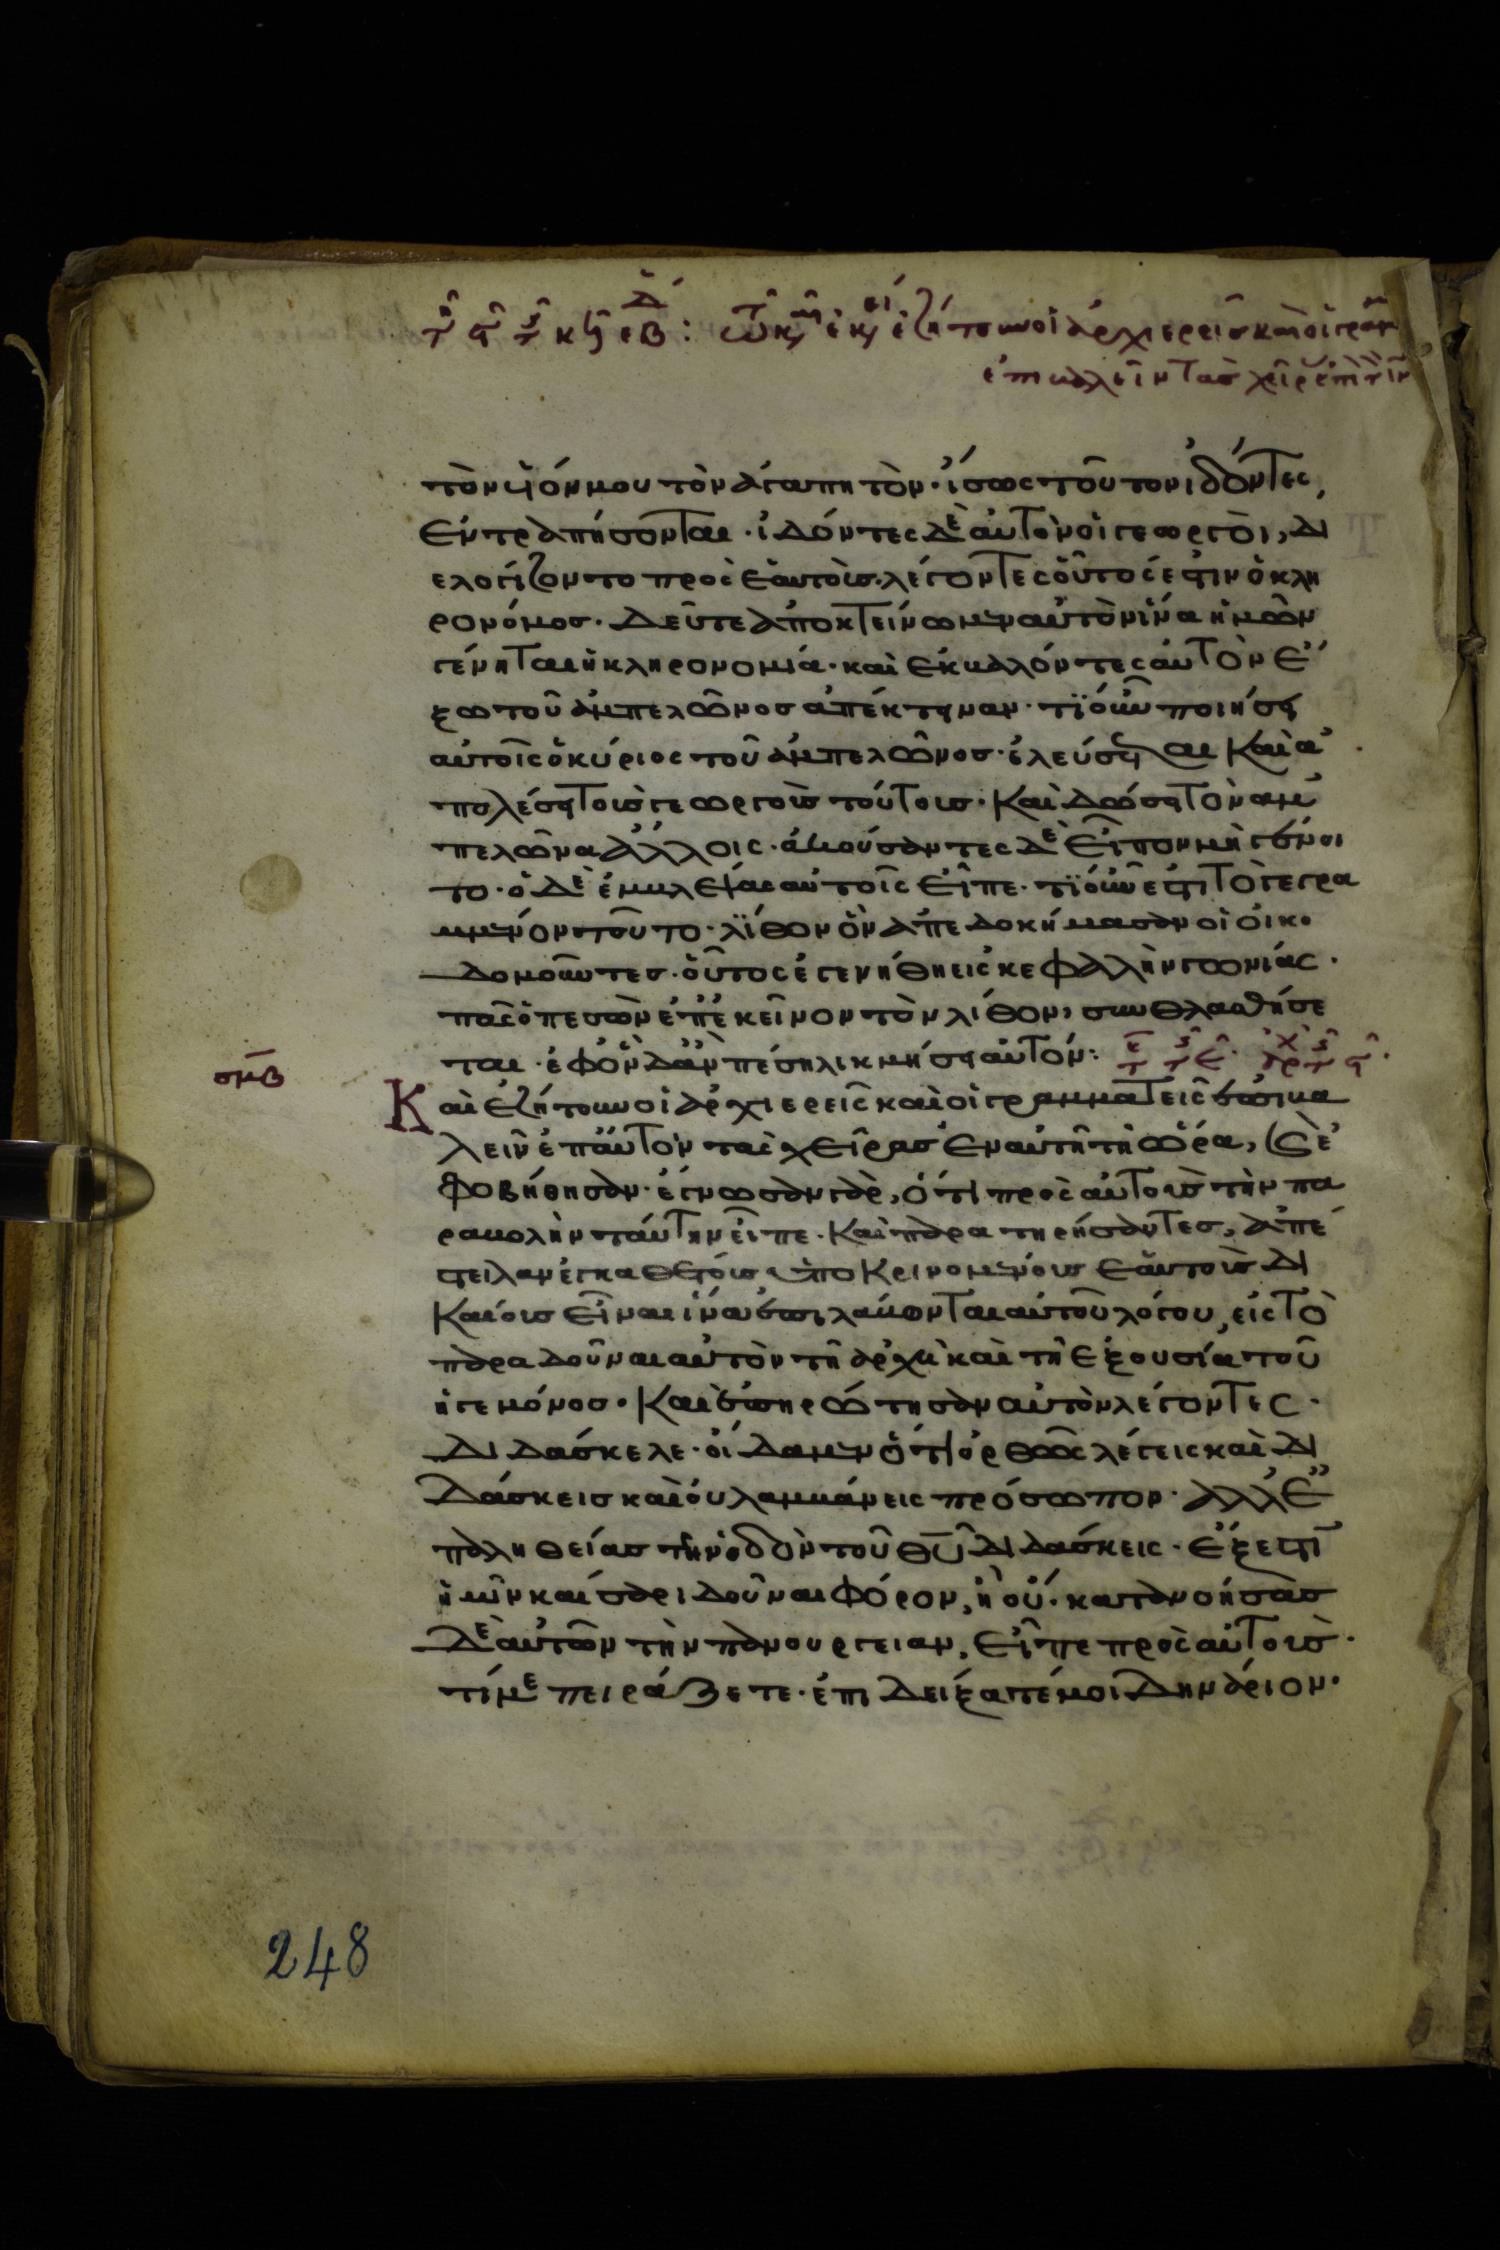 ἐζήτουν οἱ ἀρχιερεῖς καὶ οἱ γραμ
ἐπιβαλεῖν τὰς χεῖρ ἐπὶ τὸν ιν
τὸν υἱόν μου τὸν ἀγαπητόν· ἴσως τοῦτον ἰδόντες,
ἐντραπήσονται· ἰδόντες δὲ αὐτὸν οἱ γεωργοὶ, δι
ελογίζοντο πρὸς ἑαυτοὺς λέγοντες οὗτός ἐστιν ὁ κλη
ρονόμος· δεῦτε ἀποκτείνωμεν αὐτὸν ἵνα ἡμῶν
γένηται ἡ κληρονομία· καὶ ἐκβαλόντες αὐτὸν ἔ
ξω τοῦ ἀμπελῶνος ἀπέκτειναν· τί οὖν ποιήσει
αὐτοῖς ὁ κύριος τοῦ ἀμπελῶνος· ἐλεύσεται καὶ ἀ
πολέσει τοὺς γεωργοὺς τούτους· καὶ δώσει τὸν ἀμ
πελῶνα ἄλλοις· ἀκούσαντες δὲ εἶπον μὴ γένοι
το· ὁ δὲ ἐμβλέψας αὐτοῖς εἶπε· τί οὖν ἐστι τὸ γεγρα
μμένον τοῦτο· λίθον ὃν ἀπεδοκήμασαν οἱ οἰκο
δομοῦντες· οὗτος ἐγενήθη εἰς κεφαλὴν γωνίας·
πᾶς ὁ πεσὼν ἐπ' ἐκεῖνον τὸν λίθον, συνθλασθήσε
ται· ἐφ' ὃν δ' ἂν πέσῃ λικμήσει αὐτόν:
σμβ
Καὶ ἐζήτουν οἱ ἀρχιερεῖς καὶ οἱ γραμματεῖς ἐπιβα
λεῖν ἐπ' αὐτὸν τὰς χεῖρας ἐν αὐτῇ τῇ ὥρα, καὶ ἐ
φοβήθησαν· ἔγνωσαν γὰρ, ὅτι πρὸς αὐτοὺς τὴν πα
ραβολὴν ταύτην εἶπε· καὶ παρατηρήσαντες, ἀπέ
στειλαν ἐγκαθέτους ὑποκρινομένους ἑαυτοὺς δι
καίους εἶναι ἵνα ἐπιλάβονται αὐτοῦ λόγου, εἰς τὸ
παραδοῦναι αὐτὸν τῇ ἀρχῇ καὶ τῇ ἐξουσία τοῦ
ἡγεμόνος· καὶ ἐπηρώτησαν αὐτὸν λέγοντες·
διδάσκελε· οἴδαμεν ὅτι ὀρθῶς λέγεις καὶ δι
δάσκεις καὶ οὐ λαμβάνεις πρόσωπον· ἀλλ' ἐ
π' ἀληθείας τὴν ὁδὸν τοῦ θυ διδάσκεις· ἔξεστιν
ἡμῖν καίσαρι δοῦναι φόρον, ἢ οὔ· κατανοήσας
δὲ αὐτῶν τὴν πανουργειαν, εἶπε πρὸς αὐτούς·
τί με πειράζετε· ἐπιδείξατέ μοι δηνάριον·
248